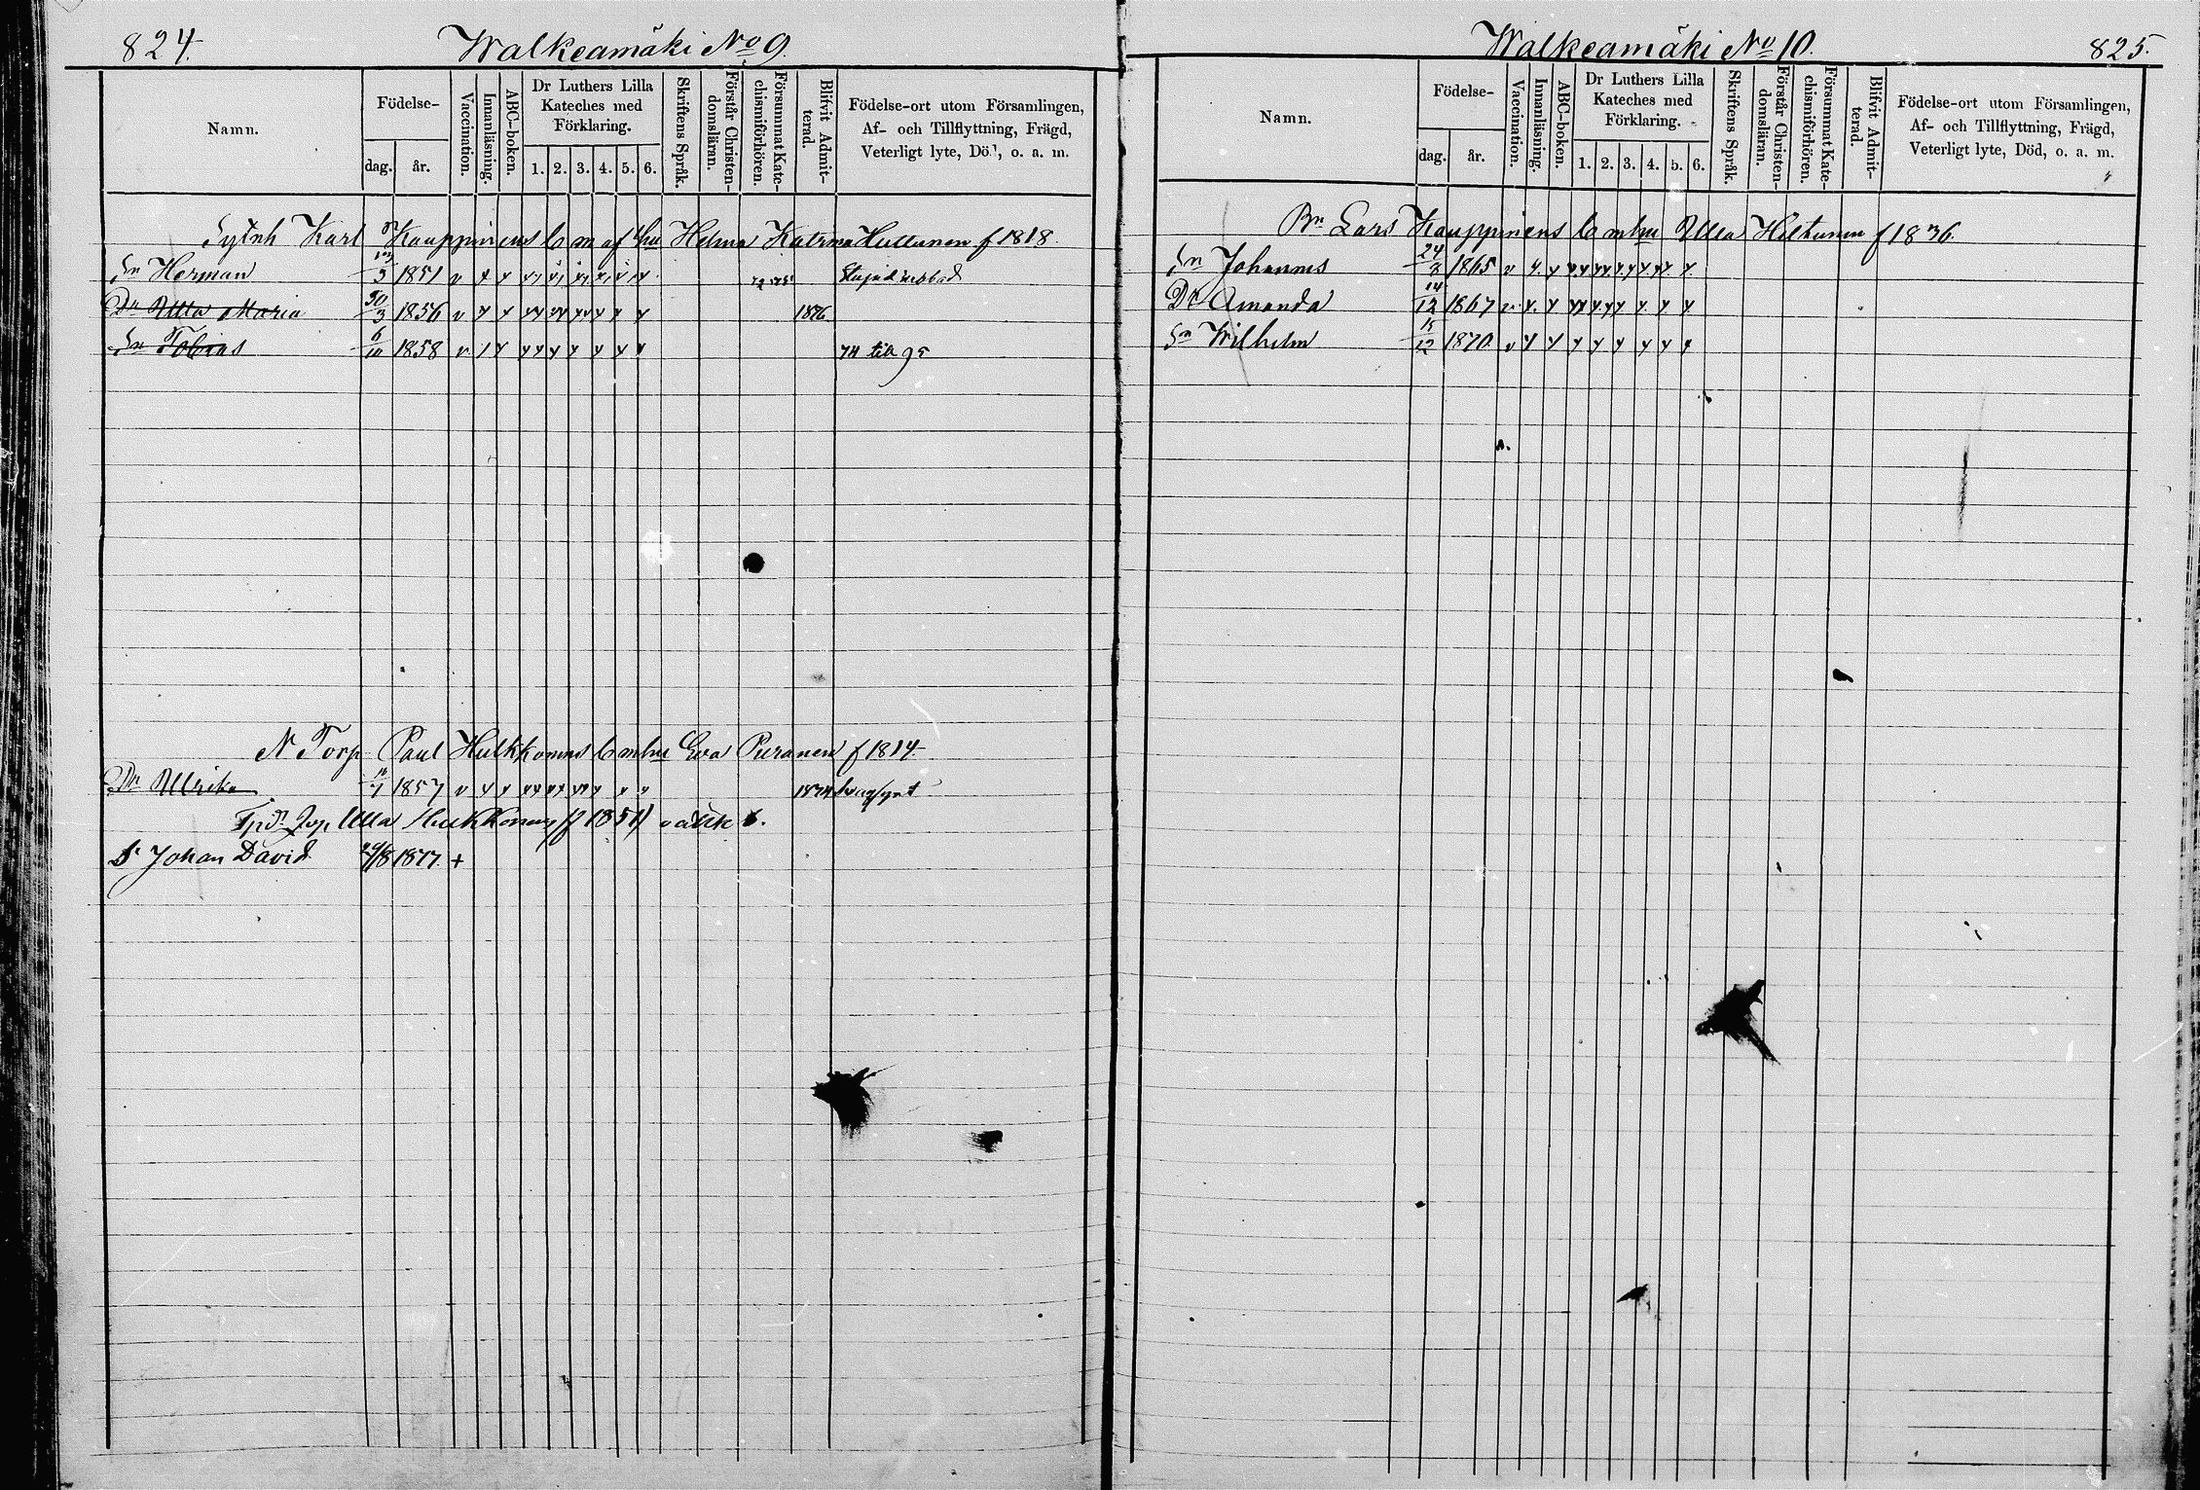 824.
Walkeamäki No 9.
Namn.
Födelse-
dag.
år.
Vaccination.
Innanläsning.
ABC-boken.
Dr Luthers Lilla
Kateches med
Förklaring.
1. 2. 3. 4. 5. 6.
Skriftens Språk.
Förstår Christen-
domsläran.
Försummat Kate-
chismiförhören.
Blifvit Admit-
terad.
Födelse-ort utom Församlingen,
Af- och Tillflyttning, Frägd,
Veterligt lyte, Död, o. a. m.
Karl Kauppinens b m af hu Helena Katrina Huttunen f 1818.
Sn Herman 5 1851 v
Dr Ulla Maria 30/3 1856 v 1876.
Sn Tobias 6/10 1858 v 74 till 95
N Torp Paul Hulkkonens b m hu Eva Puranen f 1814.
Dr Ullrika 1857 v 1874
Ulla Hulkkonen (f 1851)
S Johan David 29/8 1877. +
Walkeamäki No 10.
825.
Namn.
Födelse-
dag.
år.
Vaccination.
Innanläsning.
ABC-boken.
Dr Luthers Lilla
Kateches med
Förklaring.
1. 2. 3. 4. 5. 6.
Skriftens Språk.
Förstår Christen-
domsläran.
Försummat Kate-
chismiförhören.
Blifvit Admit-
terad.
Födelse-ort utom Församlingen,
Af- och Tillflyttning, Frägd,
Veterligt lyte, Död, o. a. m.
Bn Lars Kauppinens b m hu Ulla Hiltunen f 1836.
Sn Johannes 24/8 1865 v
Dr Amanda 14/12 1867 v
Sn Wilhelm 15/12 1870. v